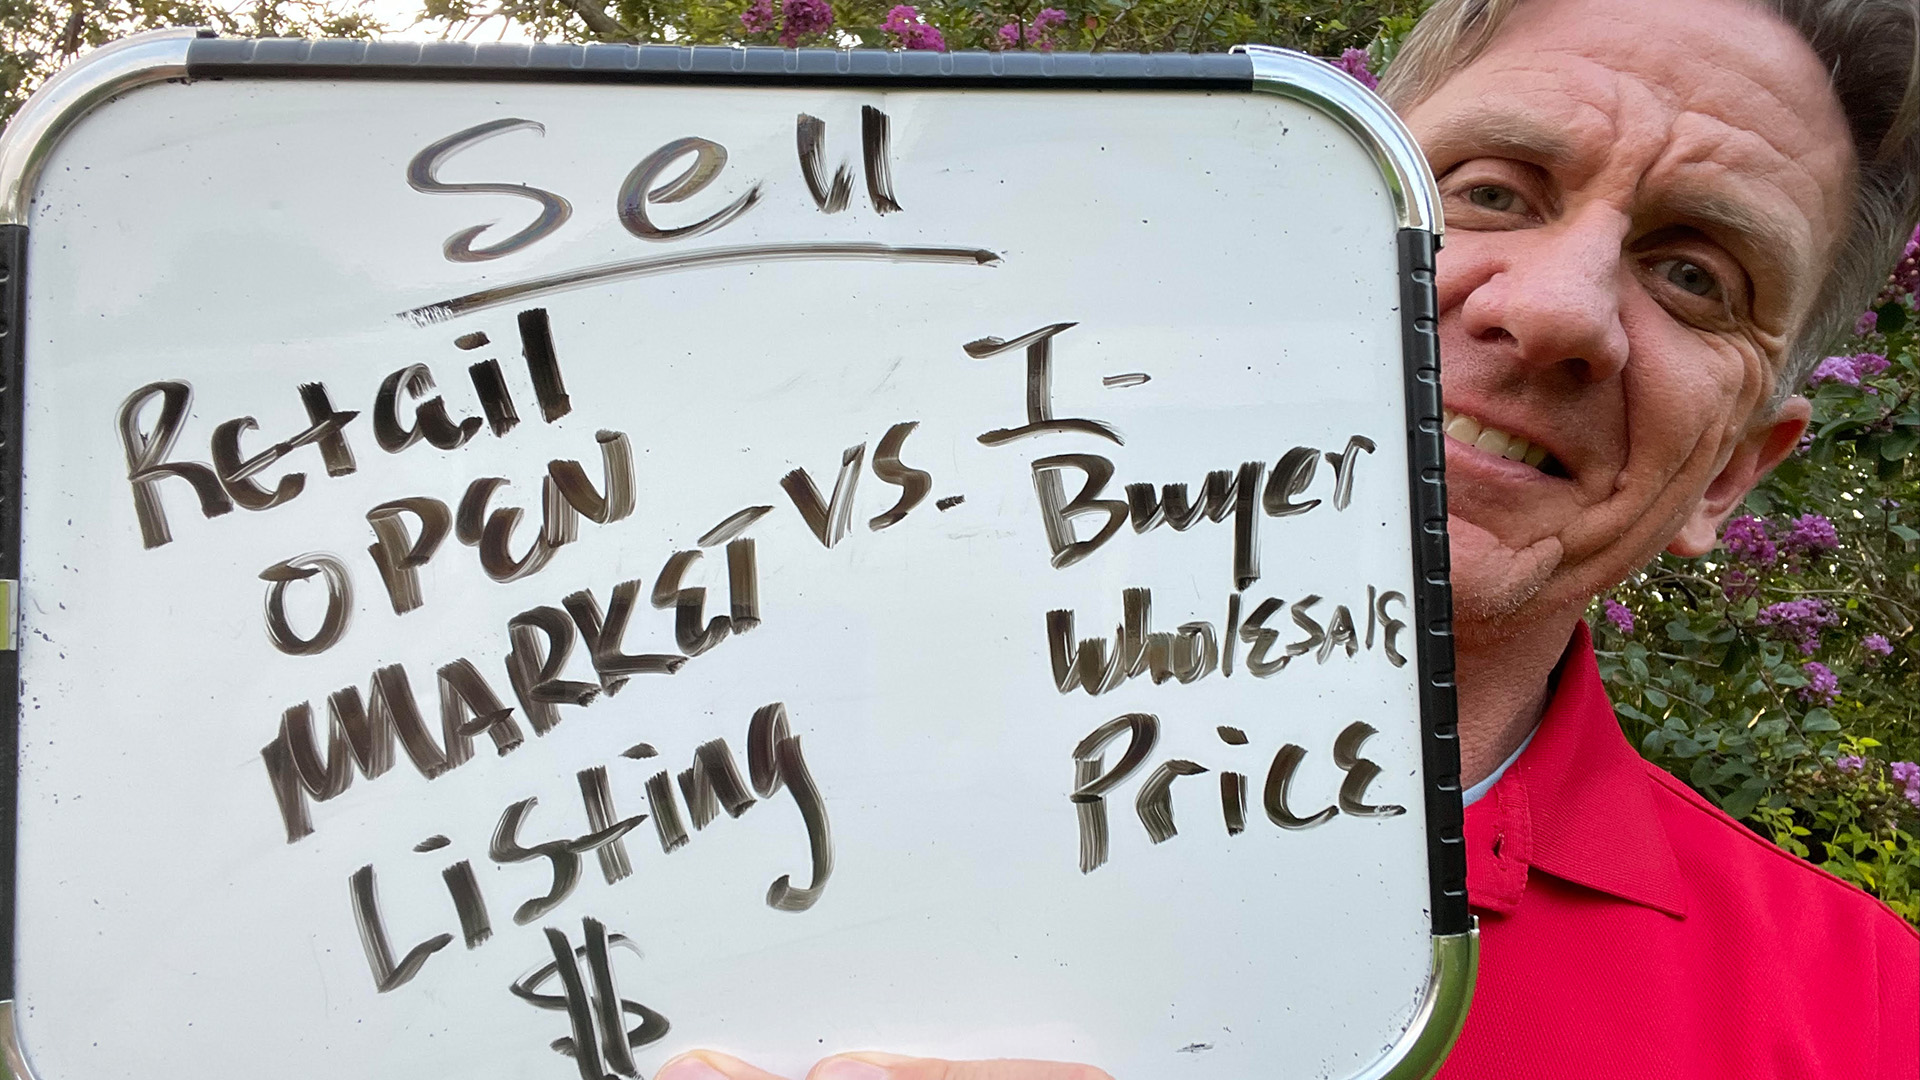 Sell
Retail
OPEN
MARKET
Listing
$
vs.
I-
Buyer
Wholesale
Price